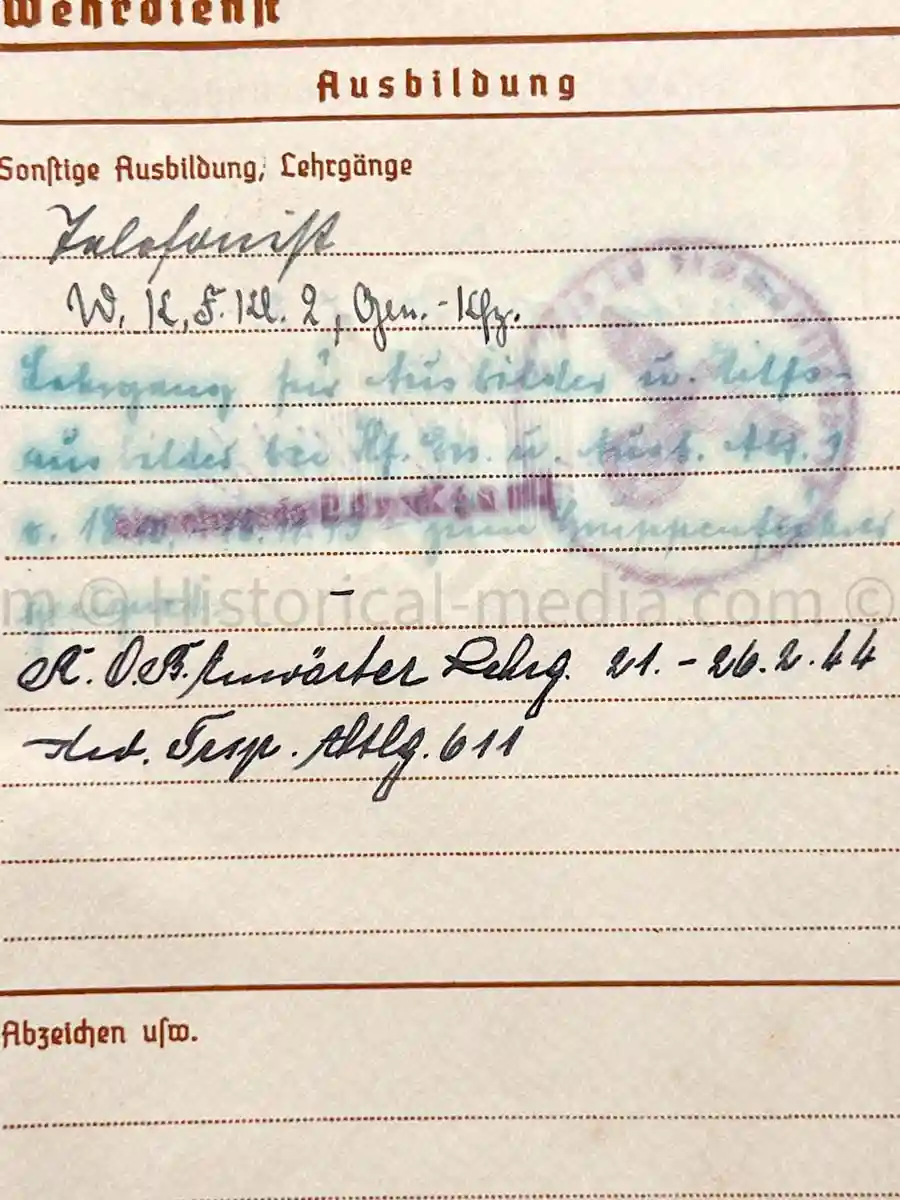 Wehrdienst
Ausbildung
Sonstige Ausbildung, Lehrgänge
Telefonist
W. K. F. Kl. 2, Gen.-Kfz.
Lehrgang für Ausbilder u. Hilfs-
ausbilder bei Kf. Ers. u. Ausb. Abt. 3
v. 18 zum Gruppenführer
geeignet.
–
m © Historical-media.com ©
K. O. B. Anwärter Lehrg. 21. – 26.2.44
Trsp. Abtlg. 611
Abzeichen usw.